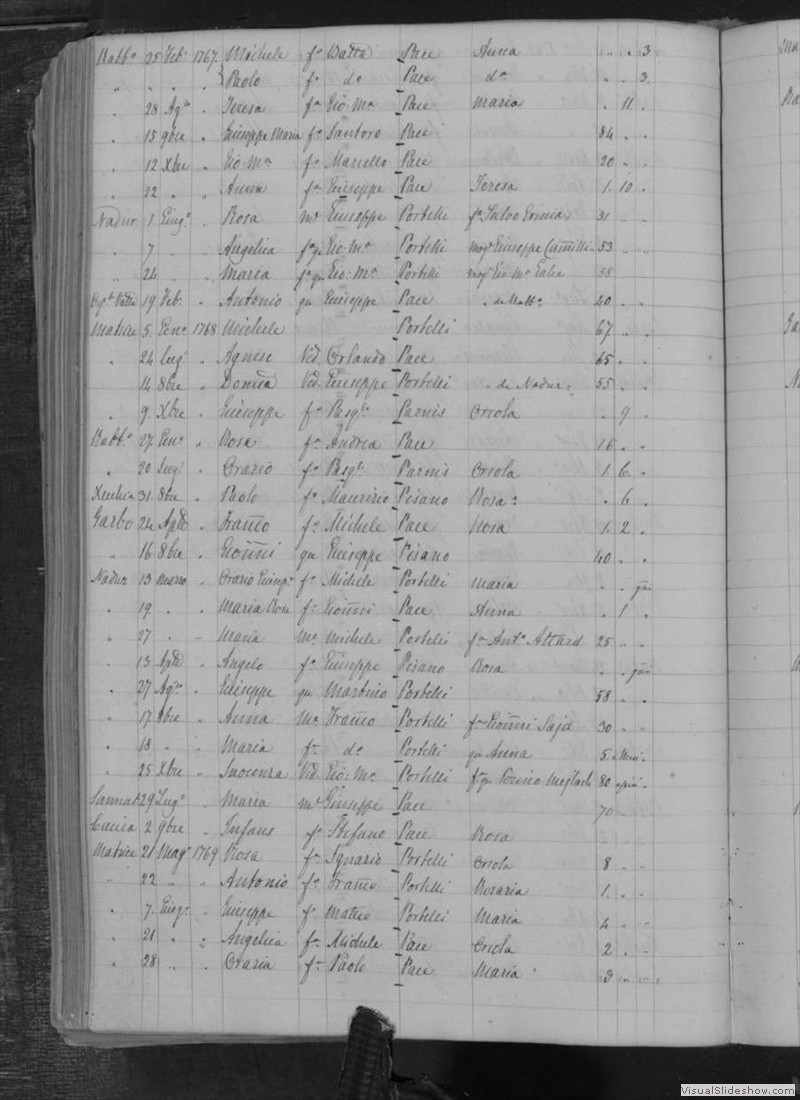 Rabbo 25 Feb. 1767 Michele fo Batta Pace Anna " . 3
" " " " Paolo fo do Pace da " . 3
" 28 Agto " Teresa fa Gio: Ma Pace Maria . 11 .
" 15 9bre " Giuseppe Maria fo Santoro Pace 84 .
" 12 Xbre " Gio: Ma fo Marcello Pace 20 "
" 22 " " Anna fa Giuseppe Pace Teresa 1. 10 .
Nadur 1 Giugo " Rosa Me Giuseppe Portelli fa Salvo 31
" 7 " Angelica fa qu Gio: Ma Portelli mog. Giuseppe Camilleri 53
" 24 " Maria fa qu Gio: Ma Portelli mog. Gio: Ma 58
19 Feb. " Antonio qu Giuseppe Pace de Rabbo 20 . .
Matrice 5. Geno 1768 Michele Portelli 67 . .
" 24 lugo " Agnese Ved. Orlando Pace 65 .
" 14 8bre " Ved. Giuseppe Portelli de Nadur 55 . .
" 9. Xbre " Giuseppe fo Pasqle Parnis Orsola . 9 .
Rabbo 27. Geno " Rosa fa Andrea Pace 16 . .
" 20 lugo " Orazio fo Pasqle Parnis Orsola 1 6 .
Xeuchia 31. 8bre " Paolo fo Maurizio Pisano Rosa . 6 .
Garbo 24 Aple " Franco fo Michele Pace Rosa 1. 2 .
" 16 8bre " Gioñni qu Giuseppe Pisano 40 . .
Nadur 13 marzo " Orazio Giuspe fo Michele Portelli Maria . .
" 19. " " Maria Rosa fa Gioñni Pace Anna . 1 .
" 27 " " Maria Me Michele Portelli fa Anto Attard 25 " "
" 13 Aple " Angelo fo Giuseppe Pisano Rosa . .
" 27 Agto " Giuseppe qu Martino Portelli 58 . .
" 17 8bre " Anna Me Franco Portelli fa Gioñni Sajd 30 . .
" 18 " " Maria fa do Portelli qu Anna 5
" 25 Xbre " Ved. Gio: Ma Portelli fa qu 80
Sannat 29 Lugo " Maria Me Giuseppe Pace 70
Caccia 2 9bre " Infans fo Stefano Pace Rosa
Matrice 21 Mago 1769 Rosa fa Ignazio Portelli Orsola 8 . .
" 22 " " Antonio fo Franco Portelli Rosaria 1. . .
" 7. Giugo " Giuseppe fo Matteo Portelli Maria 4 . .
" 21 " " Angelica fa Michele Pace Orsola 2 . .
" 28 " " Grazia fa Paolo Pace Maria 3 . .
VisualSlideshow.com